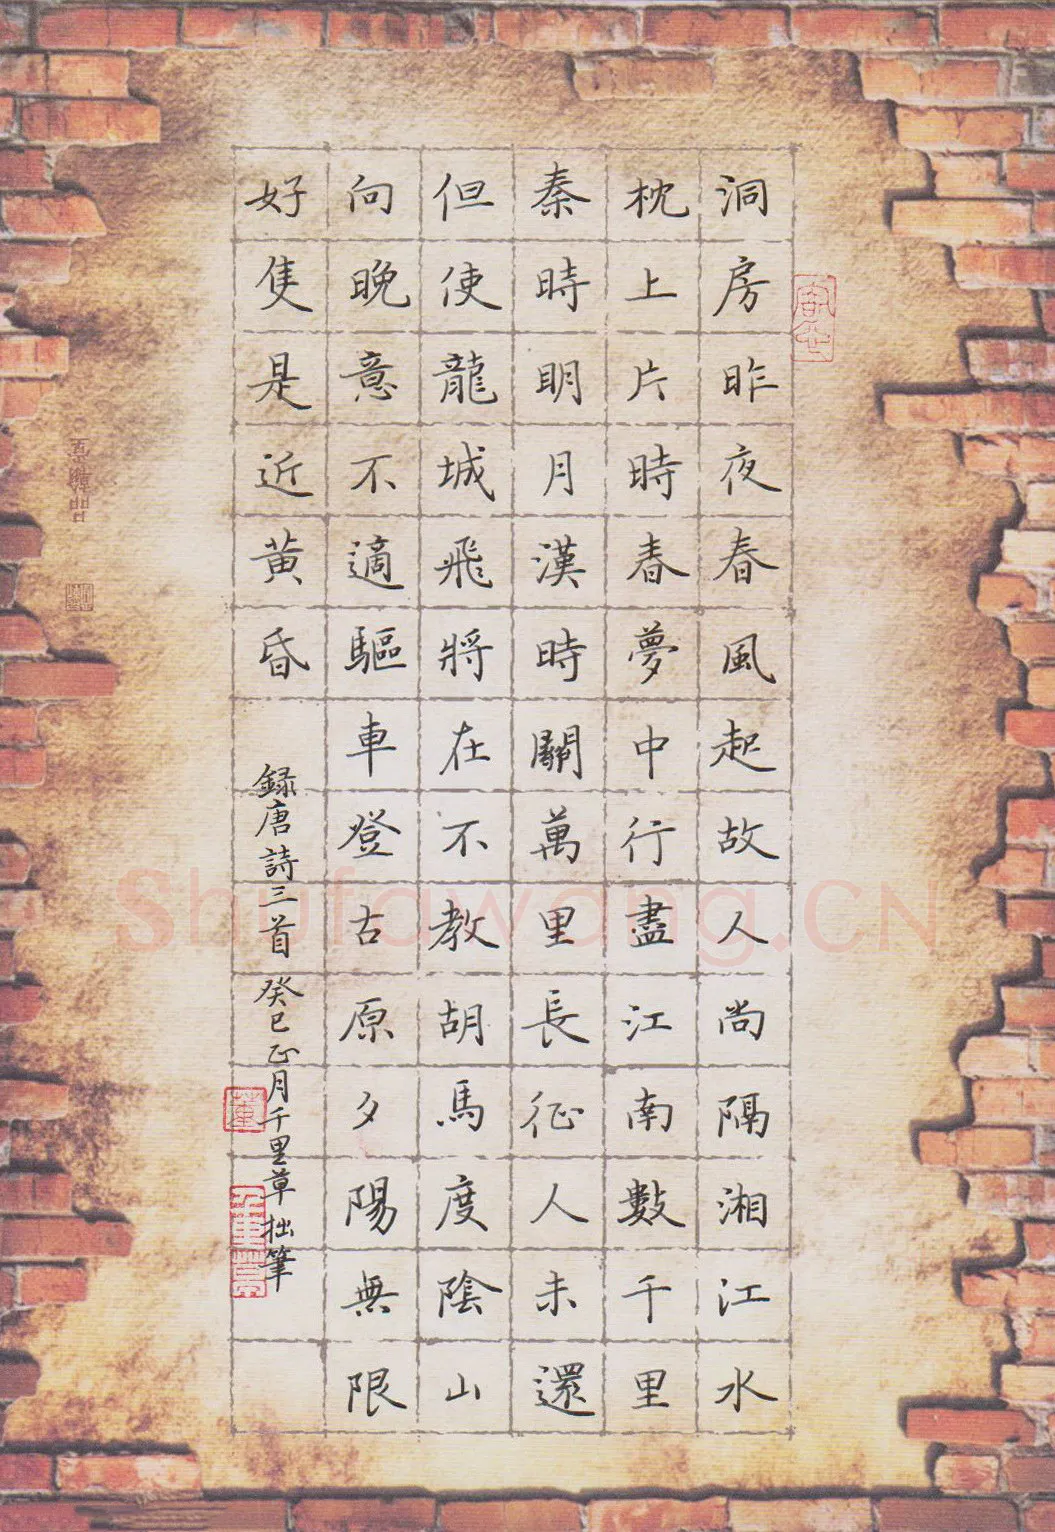 洞房昨夜春風起故人尚隔湘江水
枕上片時春夢中行盡江南數千里
秦時明月漢時關萬里長征人未還
但使龍城飛將在不教胡馬度陰山
向晚意不適驅車登古原夕陽無限
好隻是近黄昏
録唐詩三首 癸巳正月千里草拙筆
Shufawang.CN